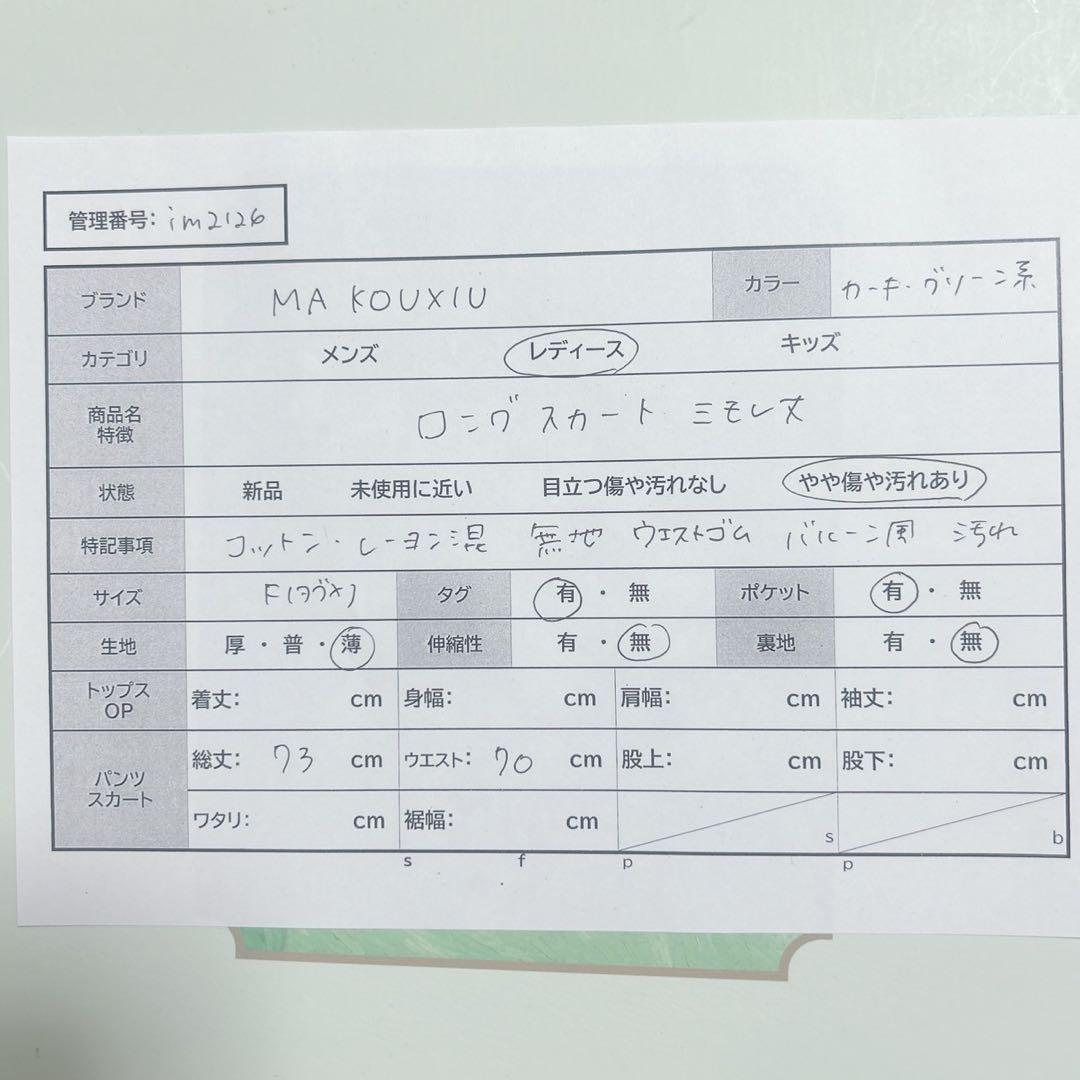 管理番号: im2126
ブランド MA KOUXIU カラー カーキ・グリーン系
カテゴリ メンズ レディース キッズ
商品名 特徴 ロングスカート ミモレ丈
状態 新品 未使用に近い 目立つ傷や汚れなし やや傷や汚れあり
特記事項 コットン・レーヨン混 無地 ウエストゴム バルーン風 汚れ
サイズ F(タグ〆) タグ 有・無 ポケット 有・無
生地 厚・普・薄 伸縮性 有・無 裏地 有・無
トップス OP 着丈: cm 身幅: cm 肩幅: cm 袖丈: cm
パンツ スカート 総丈: 73 cm ウエスト: 70 cm 股上: cm 股下: cm
ワタリ: cm 裾幅: cm s b
s f p p